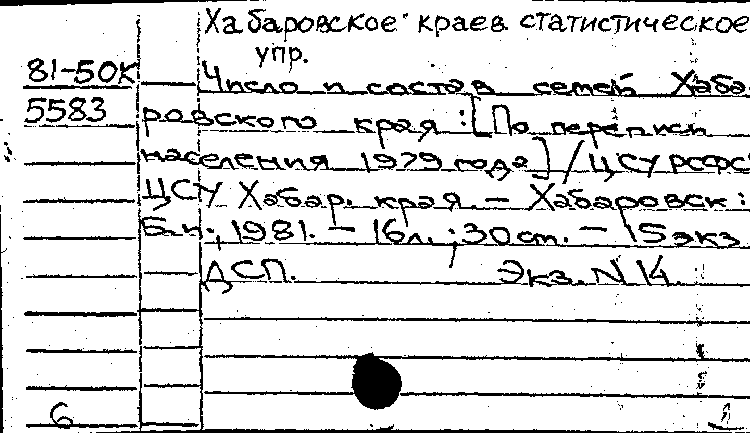 Хабаровское краев. статистическое
упр.
81-50К Число и состав семей Хаба-
5583 ровского края : [По переписи
населения 1979 года] / ЦСУ РСФС
ЦСУ Хабар. края. – Хабаровск :
Б.и., 1981. – 16л. ; 30 см. – 15 экз
ДСП. Экз. N 14.
6